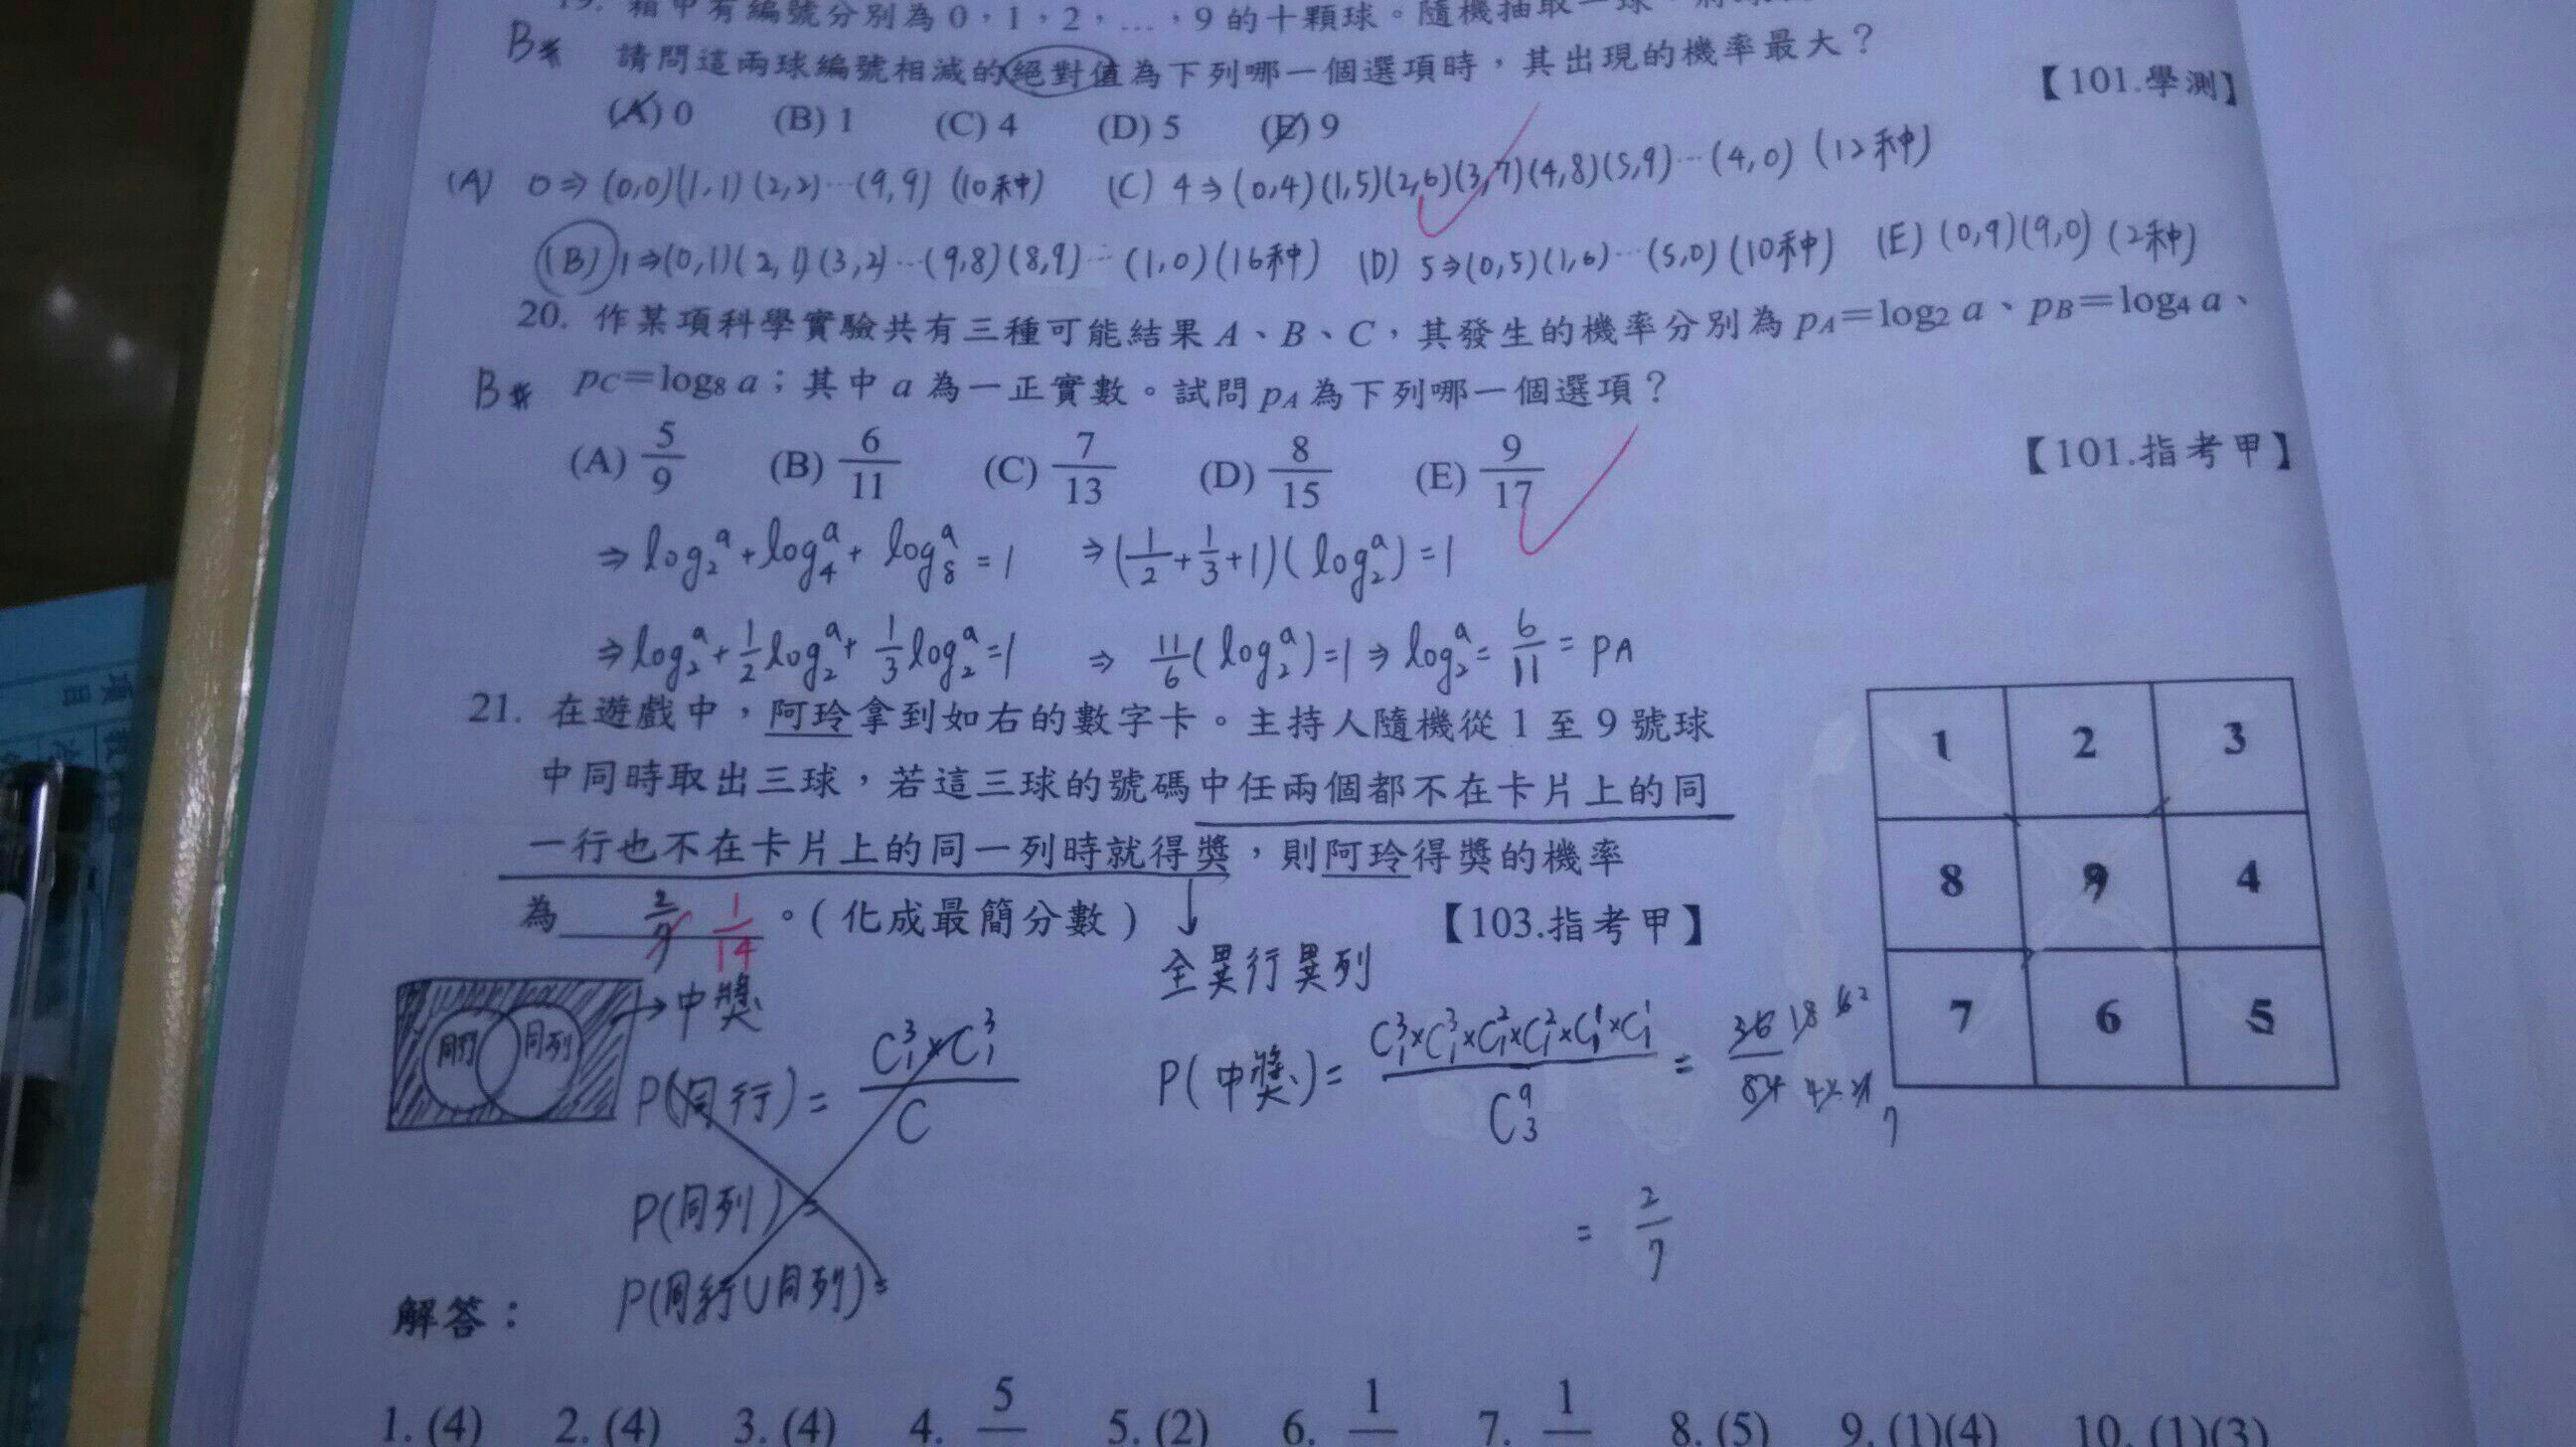 19. 箱中有編號分別為 0,1,2,…,9 的十顆球。隨機抽取一球
B* 請問這兩球編號相減的絕對值為下列哪一個選項時,其出現的機率最大?
【101.學測】
(A) 0 (B) 1 (C) 4 (D) 5 (E) 9
(A) 0⇒(0,0)(1,1)(2,2)…(9,9) (10种) (C) 4⇒(0,4)(1,5)(2,6)(3,7)(4,8)(5,9)…(4,0) (12种)
(B) 1⇒(0,1)(2,1)(3,2)…(9,8)(8,9)…(1,0)(16种) (D) 5⇒(0,5)(1,6)…(5,0)(10种) (E) (0,9)(9,0) (2种)
20. 作某項科學實驗共有三種可能結果 A、B、C,其發生的機率分別為 pA=log₂ a、pB=log₄ a、
B* pC=log₈ a;其中 a 為一正實數。試問 pA 為下列哪一個選項?
【101.指考甲】
(A) 5/9 (B) 6/11 (C) 7/13 (D) 8/15 (E) 9/17
⇒ log₂ᵃ + log₄ᵃ + log₈ᵃ = 1 ⇒ (1/2+1/3+1)(log₂ᵃ) = 1
⇒ log₂ᵃ + 1/2 log₂ᵃ + 1/3 log₂ᵃ = 1 ⇒ 11/6(log₂ᵃ) = 1 ⇒ log₂ᵃ = 6/11 = PA
21. 在遊戲中,阿玲拿到如右的數字卡。主持人隨機從 1 至 9 號球
中同時取出三球,若這三球的號碼中任兩個都不在卡片上的同
一行也不在卡片上的同一列時就得獎,則阿玲得獎的機率
為 2/7 1/14 。(化成最簡分數) 【103.指考甲】
1 2 3
8 9 4
7 6 5
↓
全異行異列
同行 同列 → 中獎
P(同行) = C³₁×C³₁ / C
P(中獎) = C³₁×C³₁×C²₁×C²₁×C¹₁×C¹₁ / C⁹₃ = 36/84 18 6 2 42 21 7
= 2/7
P(同列) =
P(同行∪同列) =
解答:
1. (4) 2. (4) 3. (4) 4. 5 5. (2) 6. 1 7. 1 8. (5) 9. (1)(4) 10. (1)(3)